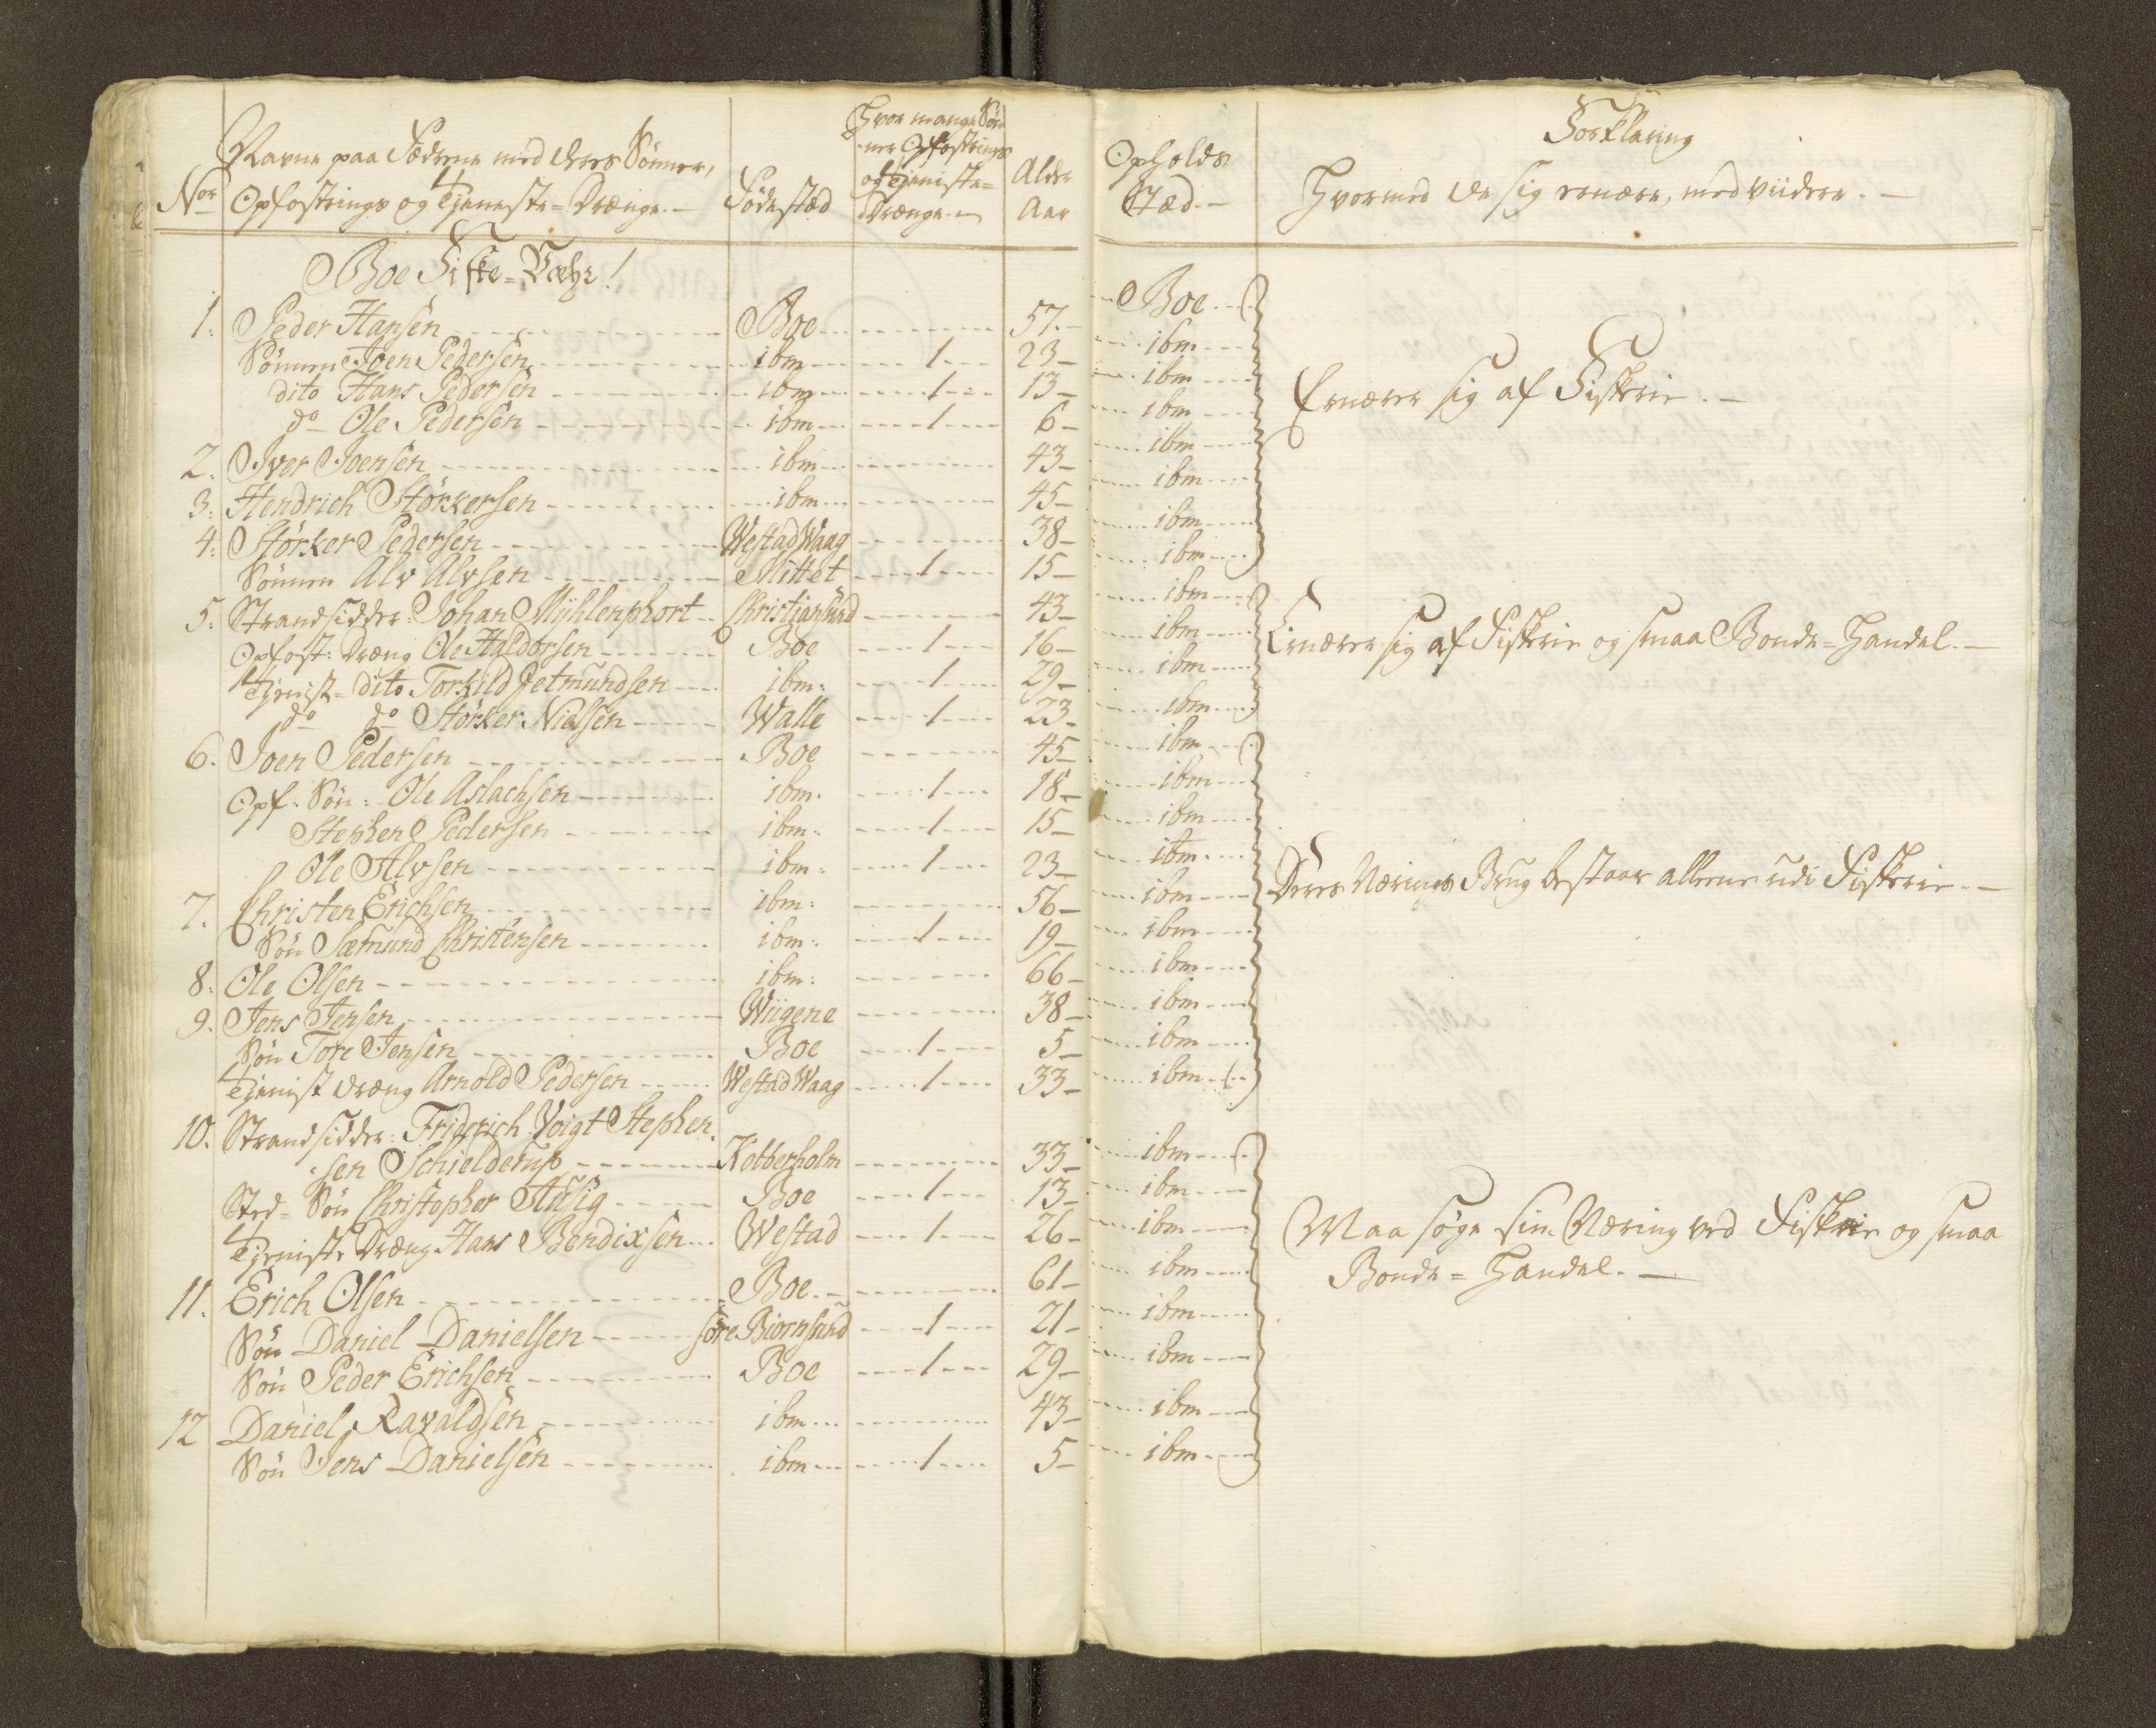 Nor
Navne paa Fæderne med deres Sønner,
Opfostrings og Tjeneste-Drænge.-
Fødested
Hvor mange Søn-
ner Opfostrings
og Tieniste-
Drænge.-
Alder
Aar
Opholds
Stæd.-
Forklaring
Hvormed de sig ernære, med viidere.-
Boe Fiske-Væhr!
1. Peder Hansen Boe 57.- Boe
Sønnen Joen Pedersen ibm 1 23- ibm
dito Hans Pedersen ibm 1 13- ibm
do Ole Pedersen ibm 1 6- ibm
Ernærer sig af Fiskerie.-
2. Iver Joensen ibm 43- ibm
3. Hendrich Størkersen ibm 45- ibm
4. Størker Pedersen WestadWaag 38- ibm
Sønnen Alv Alvsen Mittet 1 15- ibm
5. Strandsidder: Johan Mühlenphort Christiansund 43- ibm
Opfost: Dreng Ole Haldorsen Boe 1 16- ibm
Ernærer sig af Fiskerie og smaa Bonde-Handel.-
Tienist- dito Torkild Jetmundsen ibm: 1 29- ibm
do do Størker Nielsen Walle 1 23- ibm
6. Joen Pedersen Boe 45- ibm
Opf: Søn: Ole Aslachsen ibm. 1 18- ibm
Stephen Pedersen ibm: 1 15- ibm
Ole Alvsen ibm: 1 23- ibm
7. Christen Erichsen ibm: 56- ibm
Deres Nærings Brug bestaar alleene udi Fiskerie.-
Søn Sæmund Christensen ibm: 1 19- ibm
8. Ole Olsen ibm: 66- ibm
9. Jens Jensen Wiigene 38- ibm
Søn Tore Jensen Boe 1 5- ibm
Tienist dræng Arnold Pedersen WestadWaag 1 33- ibm
10. Strandsidder: Friderich Voigt Stephen-
sen Schielderup Kobberholm 33- ibm
Sted-Søn Christopher Ausig Boe 1 13- ibm
Tieniste Dræng Hans Bendixsen Westad 1 26- ibm
Maa søge sin Næring ved Fiskerie og smaa
Bonde-Handel.-
11. Erich Olsen Boe.- 61- ibm
Søn Daniel Danielsen søre Biornsund 1 21- ibm
Søn Peder Erichsen Boe 1 29- ibm
12 Daniel Ravaldsen ibm 43- ibm
Søn Jens Danielsen ibm 1 5- ibm